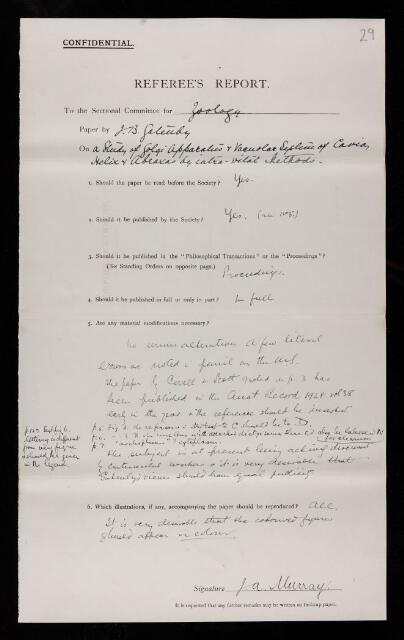 29
CONFIDENTIAL.
REFEREE'S REPORT.
To the Sectional Committee for Zoology
Paper by J. B. Gatenby
On a Study of Golgi Apparatus & Vacuolar System of Cavia,
Helix & Abraxas by intra-vital Methods.
1. Should the paper be read before the Society? Yes.
2. Should it be published by the Society? Yes. (see no 5)
3. Should it be published in the "Philosophical Transactions" or the "Proceedings"?
(See Standing Orders on opposite page.)
Proceedings.
4. Should it be published in full or only in part? In full
5. Are any material modifications necessary?
No serious alterations. A few literal
errors as noted in pencil on the MS.
The paper by Covell & Scott noted on p. 3 has
been published in the Anat Record 1928 vol 38
early in the year & the reference should be inserted
p. 6 Fig. the reference should be to D
The subject is at present being actively discussed
by continental workers & it is very desirable that
Gatenby's views should have equal publicity
lettering is different
from every figure
& should be given
in the legend
6. Which illustrations, if any, accompanying the paper should be reproduced? All.
It is very desirable that the coloured figures
should appear in colour.
Signature J. A. Murray.
It is requested that any further remarks may be written on foolscap paper.